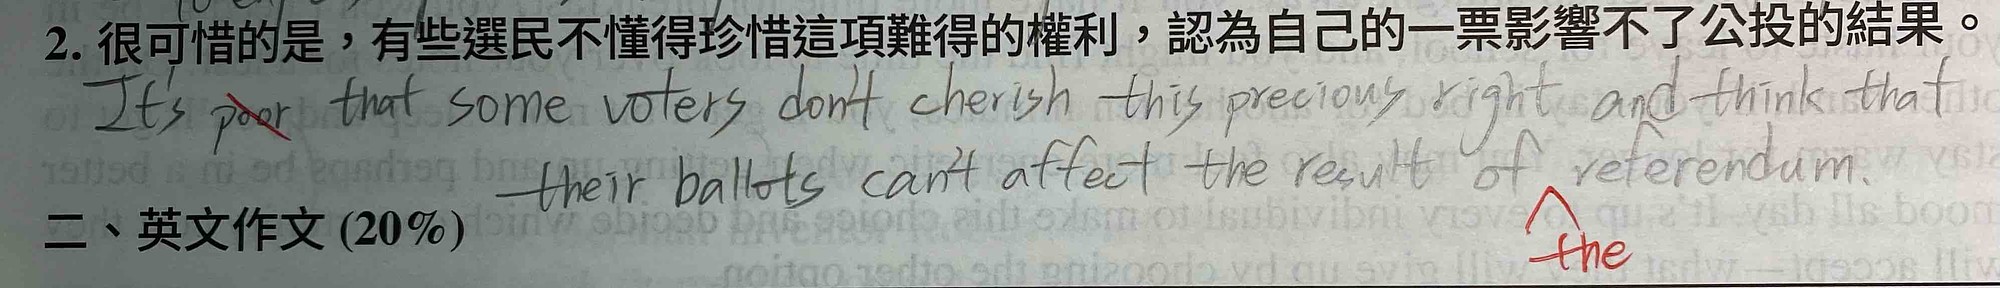 2. 很可惜的是，有些選民不懂得珍惜這項難得的權利，認為自己的一票影響不了公投的結果。
It's poor that some voters don't cherish this precious right and think that
their ballots can't affect the result of referendum.
the
二、英文作文 (20%)